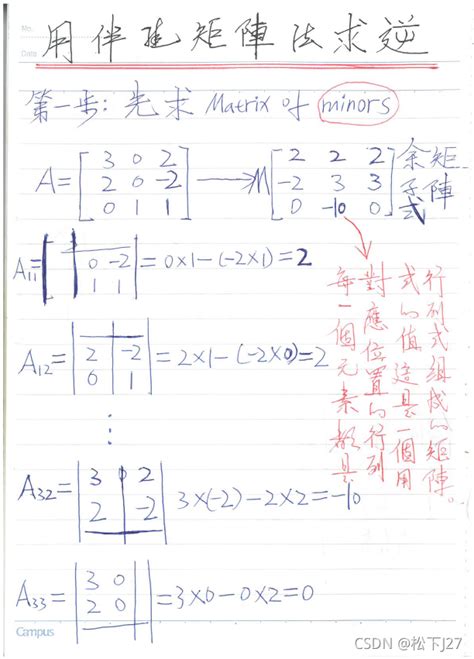 No.
Date
用伴随矩陣法求逆
第一步: 先求 Matrix of minors
A= [ 3 0 2 ; 2 0 -2 ; 0 1 1 ] → M [ 2 2 2 ; -2 3 3 ; 0 -10 0 ] 余子式矩陣
A11= | 0 -2 ; 1 1 | = 0×1-(-2×1)=2
A12= | 2 -2 ; 0 1 | = 2×1-(-2×0)=2
⋮
A32= | 3 0 2 ; 2 -2 | 3×(-2)-2×2=-10
A33= | 3 0 ; 2 0 | =3×0-0×2=0
每一個元素都是
對應位置的行列
式的值這是一個用
行列式組成的矩陣。
Campus
CSDN @松下J27